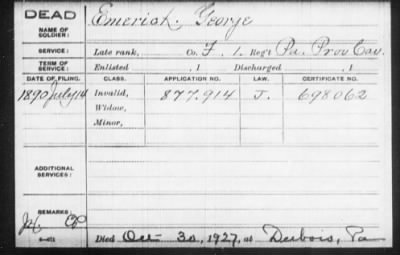 DEAD
NAME OF SOLDIER: Emerick, George
SERVICE: Late rank, Co. F, 1 Reg't Pa. Prov Cav.
TERM OF SERVICE: Enlisted , 1 Discharged , 1
DATE OF FILING. CLASS. APPLICATION NO. LAW. CERTIFICATE NO.
1890 July 14 Invalid, 877.914 J. 698062
Widow,
Minor,
ADDITIONAL SERVICES:
REMARKS:
Died Oct 30, 1927, at Dubois, Pa